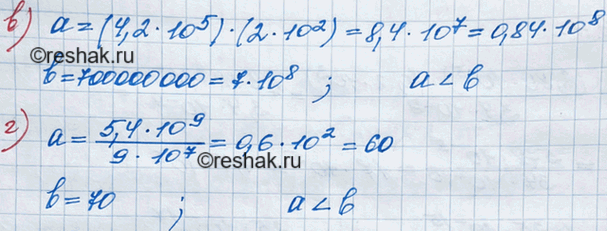 в) a = (4,2 · 10⁵) · (2 · 10²) = 8,4 · 10⁷ = 0,84 · 10⁸
©reshak.ru
b = 700000000 = 7 · 10⁸ ; a < b
г) a = (5,4 · 10⁹)/(9 · 10⁷) = 0,6 · 10² = 60
©reshak.ru
b = 70 ; a < b